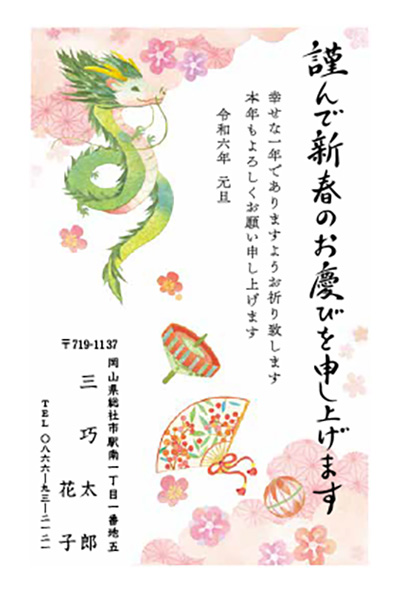 謹んで新春のお慶びを申し上げます
幸せな一年でありますようお祈り致します
本年もよろしくお願い申し上げます
令和六年 元旦
〒719-1137
岡山県総社市駅南一丁目一番地五
三巧 太郎
花子
TEL 〇八六六ー九三ー二一二一